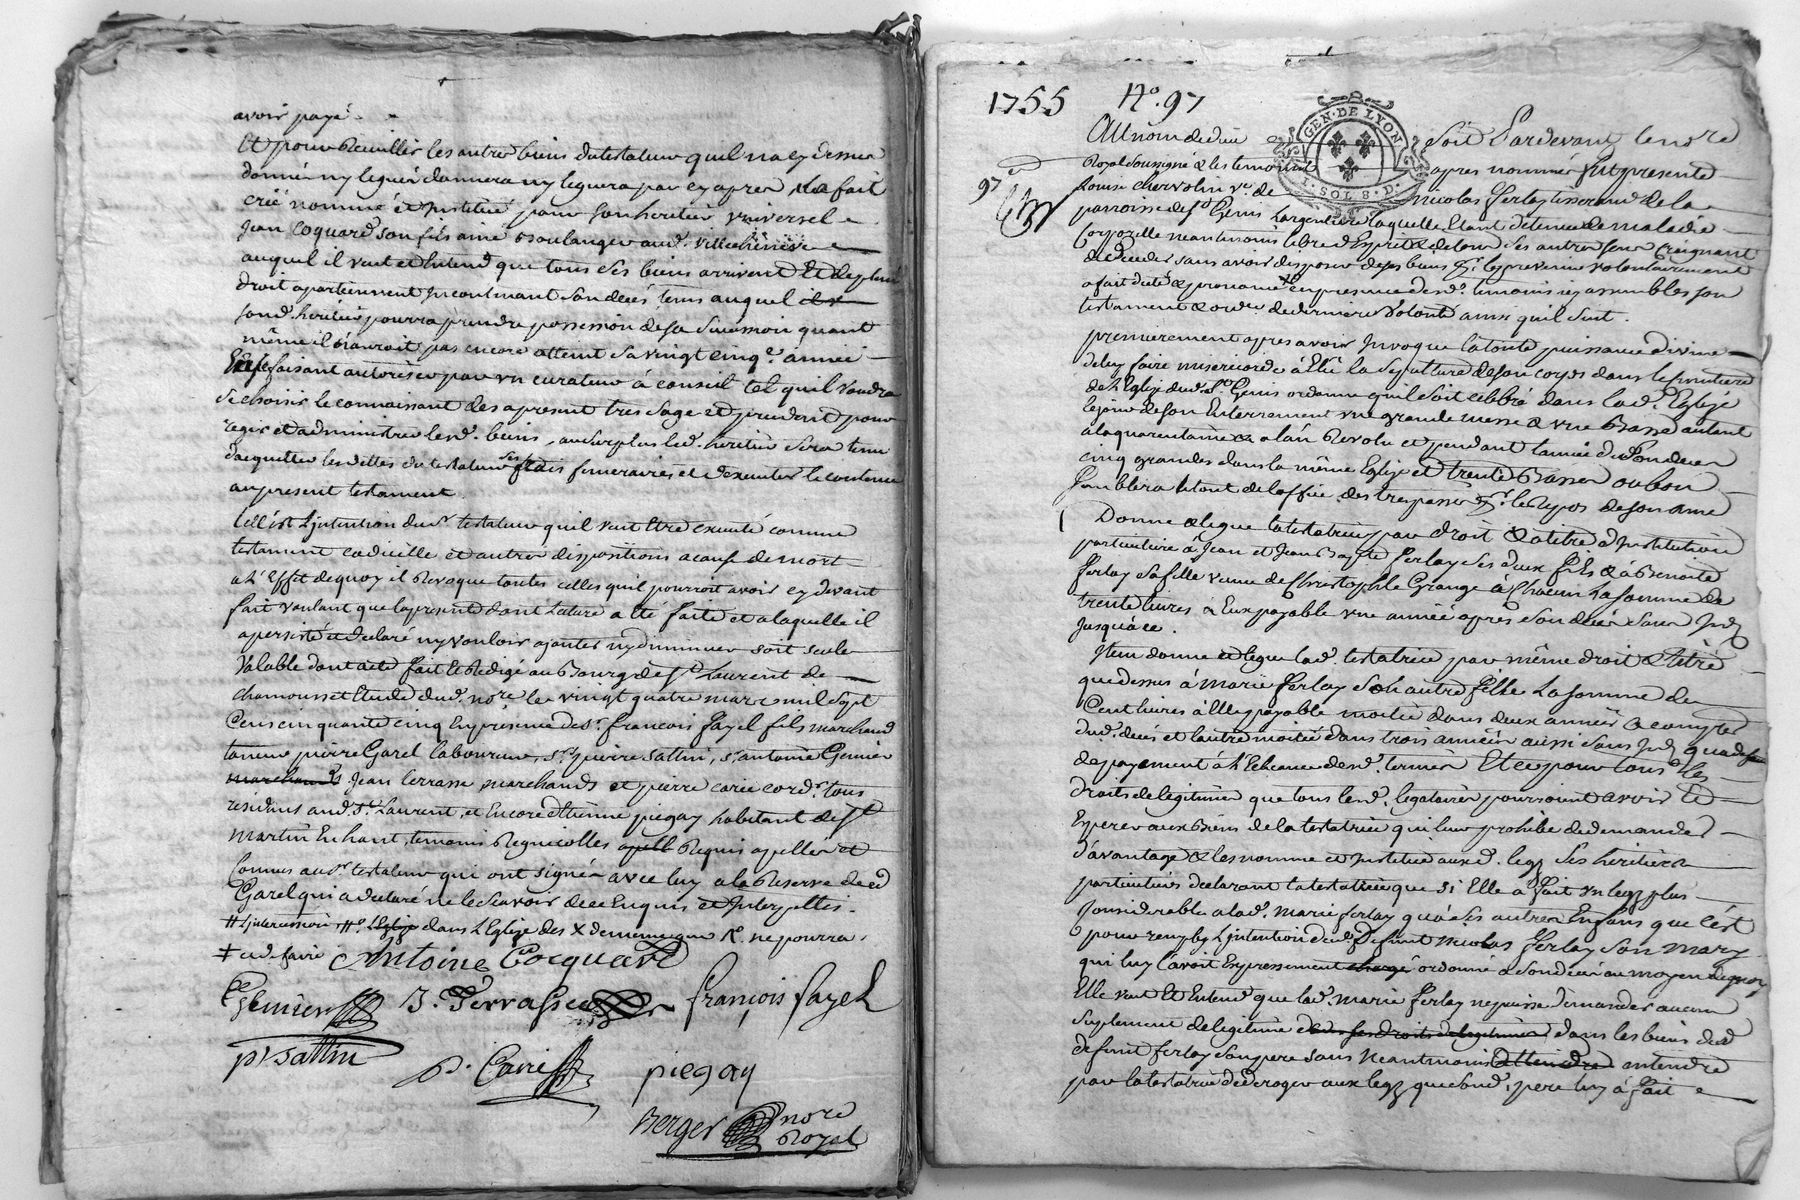 avoir payé.
Et pour Recuillir les autres biens du testateur quil na cy dessus
donné ny legué donnera ny leguera par cy apres Il a fait
créé nommé et Institué pour son heritier universel
Jean Coquard son fils ainé Boulanger aud. villechineve
auquel il veut et Entend que tous ses biens arrivent Et de plein
droit apartiennent Incontinant son decés tems auquel il v
sond. heritier pourra prendre possession de sa Succession quant
même il n'auroit pas encore atteint sa vingt cinq.e année
En se faisant autoriser par un curateur à conseil tel quil voudra
se choisir le connaissant des apresent tres sage et prudent pour
regir et administrer lesd. biens, au surplus led. heritier sera tenu
dacquitter les dettes du testateur ses frais funeraires et dexecuter le contenu
au present testament
Cest Lintention dud. testateur quil veut Etre executé comme
testament codicille et autres dispositions a cause de mort
a L'Effet de quoy il Revoque toutes celles quil pourroit avoir cy devant
fait voulant que la presente dont Lecture a été faite et a laquelle il
a persisté et declaré ny vouloir ajouter ny diminuer soit seule
Valable dont acte fait et Redigé au Bourg de St Laurent de
chamousset Etude dud. no.re le vingt quatre mars mil sept
Cens cinquante cinq En presence de s.r francois fayel fils marchand
taneur pierre Garel laboureur, s.r pierre Sattin, s.r antoine Gemier
marchands Jean terrasse marchands et pierre carie cord.r tous
residents aud. St Laurent, et Encore d'Etienne piegay habitant de St
Martin En haut, temoins Regnicolles apell Requis apellés et
Connus aud. testateur qui ont signés avec luy a la Reserve dud
Garel qui a declaré ne le sçavoir de ce Enquis et Interpellés.
# Lintercession # L'Eglise dans L'Eglise des X de meme que R. ne pourra
‡ ced. faire Antoine Cocquard
Gemier J. Terrasse françois fayel
p. Sattin P. Carie piegay
Berger no.re
Royal
1755 N.o 97
GEN. DE LYON
1. SOL 8. D.
97.e
Au nom de dieu Soit Pardevant le no.re
Royal Soussigné & les temoins apres nommés fut presente
Louise chervolin v.e de Nicolas ferlay tisserand de la
parroisse de S.t Genis Largentiere laquelle Etant detenue de maladie
Corporelle neantmoins libre d'Esprit & de tous ses autres sens Craignant
de deceder sans avoir disposer de ses biens p.r les prevenir volontairement
a fait dicté & prononcé en presence desd. temoins icy assemblés son
testament & ordre de derniere Volonté ainsy quil suit.
premierement apres avoir Invoque la toute puissance divine
de luy faire misericorde à Elû la sepulture de son corps dans le cimetiere
de L'Eglise dud. S.t Genis ordonne quil soit celebré dans lad. Eglise
le jour de son Enterrement une grande messe & une Basse autant
a la quarantaine & a l'an Revolu et pendant l'année de son deces
cinq grandes dans la même Eglise et trente Basses ou bon
semblera le tout de loffice des trepassés p.r le Repos de son ame
Donne & legue la testatrice par droit & a titre d'Institution
particuliere à Jean et Jean Bap.te ferlay ses deux fils & à Benoite
ferlay sa fille veuve de Christophle Grange à Chacun La somme de
trente livres à Eux payable une année apres son decés sans Int.
Jusqu'à ce.
Item donne et legue lad. testatrice par même droit & titre
que dessus à Marie ferlay son autre fille La somme de
Cent livres à Elle payable moitié dans deux années à compter
dud. decés et l'autre moitié dans trois années aussi sans Int. qua deffaut
de payement à L'Echeance desd. termes Et ce pour tous les
droits de legitime que tous lesd. legataires pourroient avoir Et
Esperer aux Biens de la testatrice qui leur prohibe de demander
d'avantage & les nomme et Institue auxd. legs ses heritiers
particuliers declarant la testatrice que si Elle a fait un legs plus
considerable a lad. Marie ferlay qu'à ses autres Enfans que c'est
pour remplir Lintention dud. Defunt Nicolas ferlay son mary
qui luy l'avoit Expressement chargé ordonné a son decés au moyen de quoy
Elle veut Et Entend que lad. Marie ferlay ne puisse demander aucun
suplement de legitime de ses droits de legitime dans les biens dud
defunt ferlay son pere sans neantmoins attendre entendre
par la testatrice deroger aux legs que sond. pere luy à fait